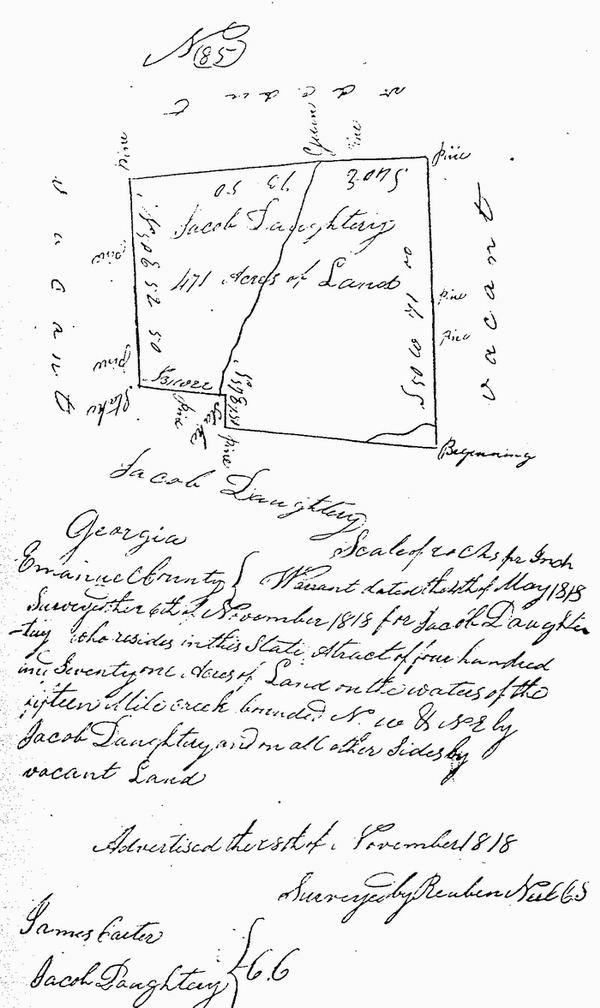 No
(185)
vacant
pine
Gum
pine
pine
13 50
Jacob Daughtery
471 Acres of Land
vacant
pine
pine
pine
pine
vacant
Stake
pine
Stake
pine
Beginning
Jacob Daughtery
Georgia
Scale of 20 chs per Inch
Emanuel County { Warrant dated the 4th of May 1818
Surveyed the 6th of November 1818 for Jacob Daughter
-tery who resides in this State a tract of four hundred
and Seventy one Acres of Land on the waters of the
fifteen Mile creek bounded N. W & N E by
Jacob Daughtery and on all other Sides by
vacant Land
Advertised the 28th of November 1818
Surveyed by Reuben Neel C S
James Carter
Jacob Daughtery } C. C